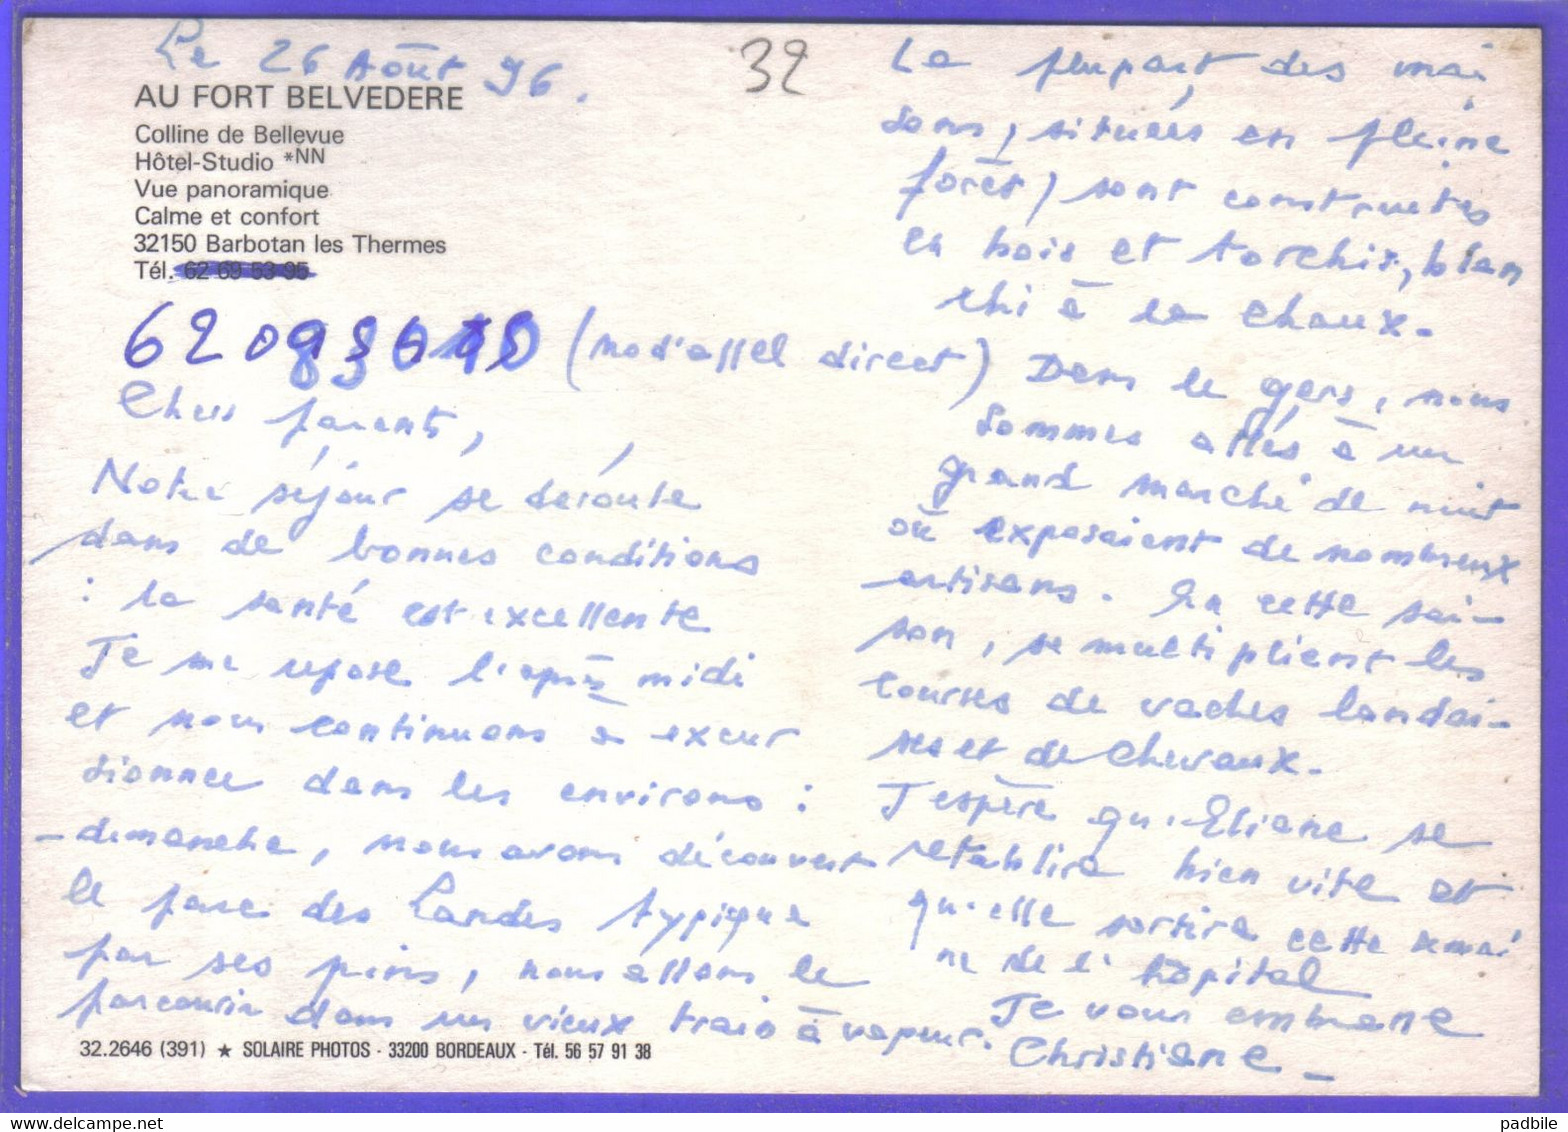 Le 26 Août 96.
32
AU FORT BELVEDERE
Colline de Bellevue
Hôtel-Studio *NN
Vue panoramique
Calme et confort
32150 Barbotan les Thermes
Tél. 62 69 53 95
(no d'appel direct)
Chers parents,
Notre séjour se déroule
dans de bonnes conditions
: la santé est excellente
Je me repose l'après midi
et nous continuons à excur
sionner dans les environs :
- dimanche, nous avons découvert
le parc des Landes typique
par ses pins, nous allons le
parcourir dans un vieux train à vapeur.
32.2646 (391) ★ SOLAIRE PHOTOS - 33200 BORDEAUX - Tél. 56 57 91 38
La plupart des mai
sons, situées en pleine
forêt, sont construites
en bois et torchis, blan
chi à la chaux.
Dans le gers, nous
sommes allés à un
grand marché de nuit
où exposaient de nombreux
artisans. En cette sai-
son, se multiplient les
courses de vaches landai-
ses et de chevaux.
J'espère qu'Eliane se
retablira bien vite et
qu'elle sortira cette semai
ne de l'hôpital
Je vous embrasse
Christiane_
padbile